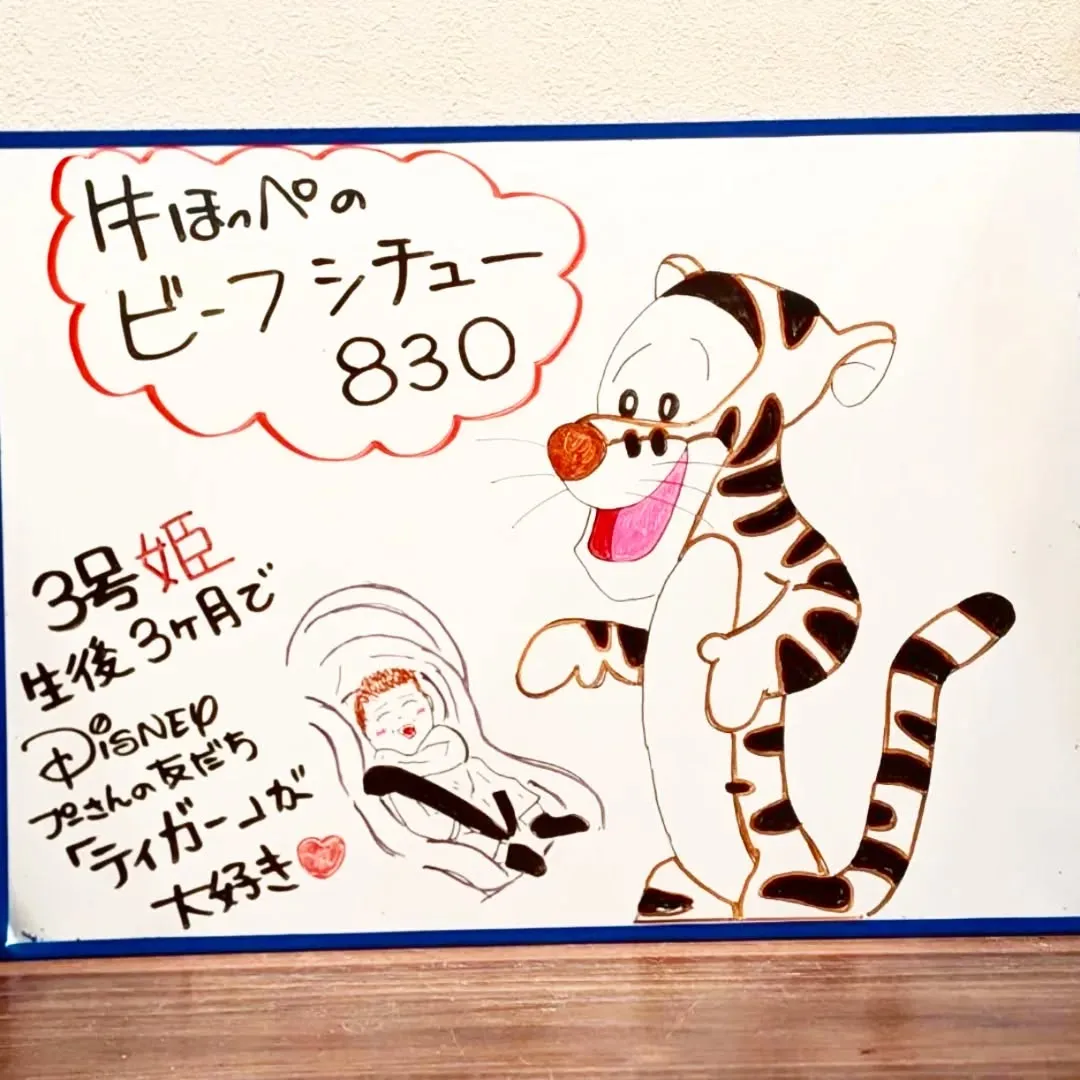 牛ほっぺの
ビーフシチュー
830
3号姫
生後3ヶ月で
DiSNEY
プーさんの友だち
「ティガー」が
大好き